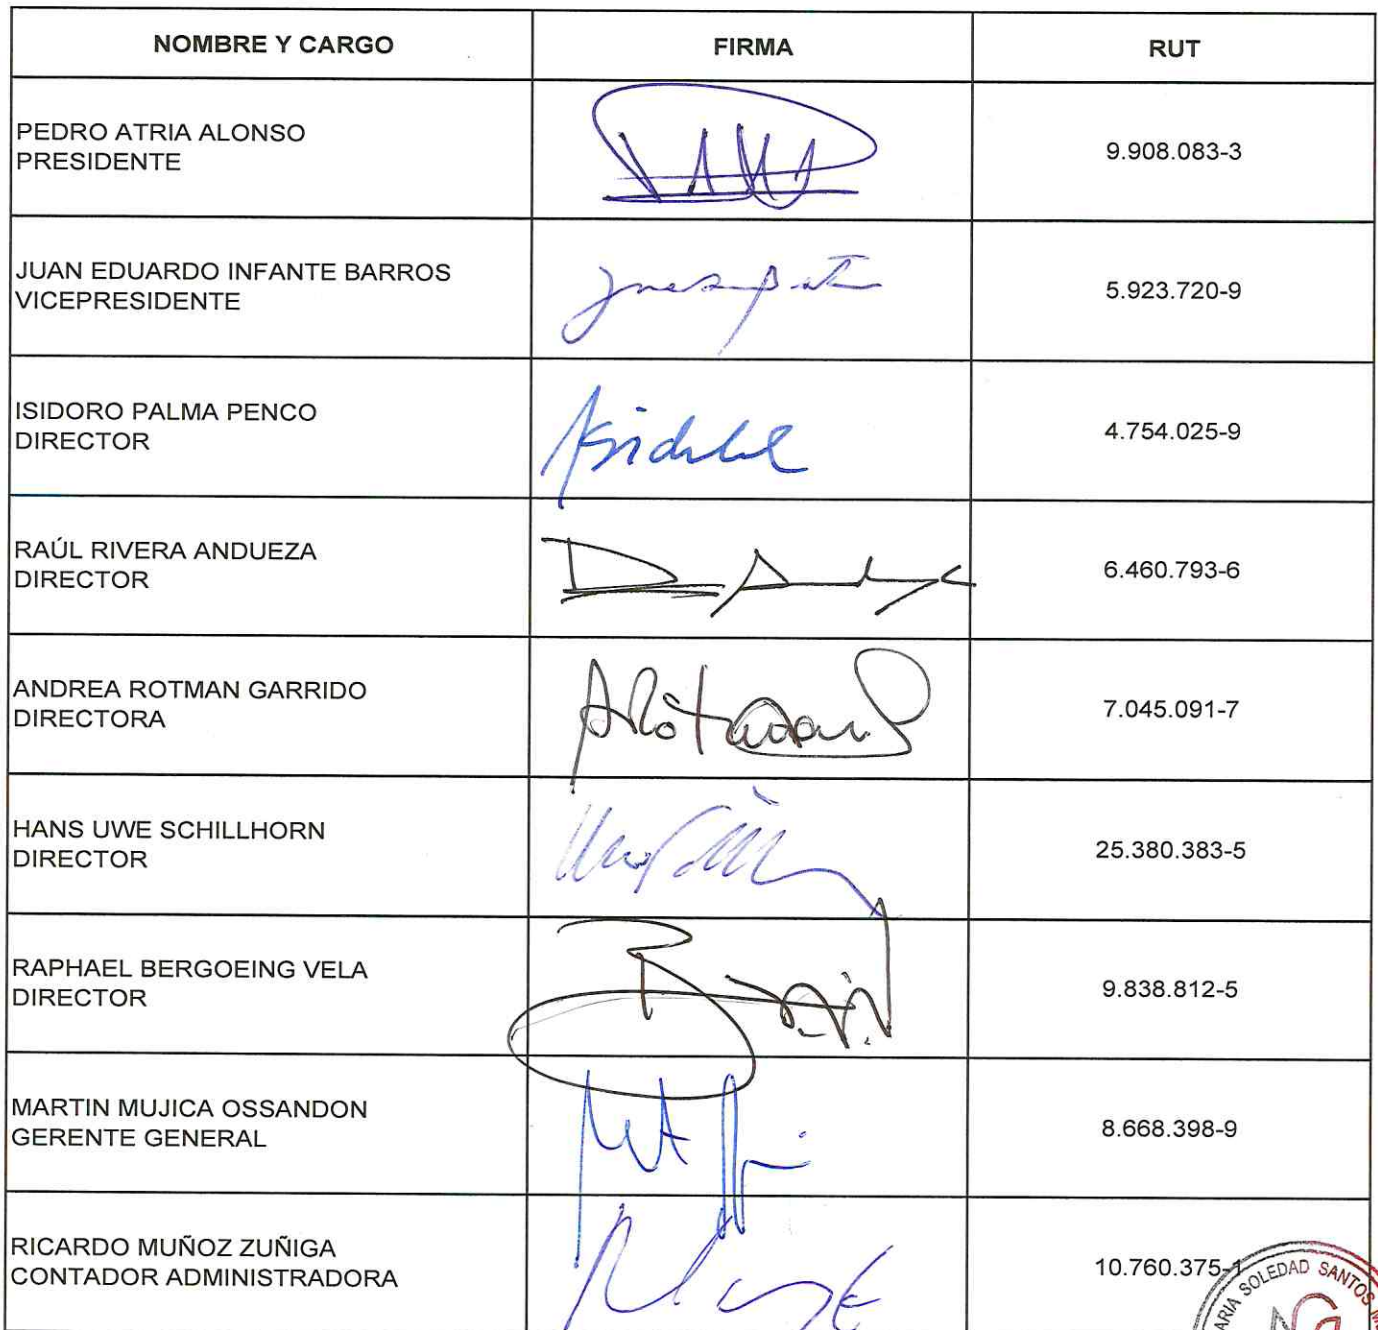 NOMBRE Y CARGO FIRMA RUT
PEDRO ATRIA ALONSO
PRESIDENTE
9.908.083-3
JUAN EDUARDO INFANTE BARROS
VICEPRESIDENTE
5.923.720-9
ISIDORO PALMA PENCO
DIRECTOR
4.754.025-9
RAÚL RIVERA ANDUEZA
DIRECTOR
6.460.793-6
ANDREA ROTMAN GARRIDO
DIRECTORA
7.045.091-7
HANS UWE SCHILLHORN
DIRECTOR
25.380.383-5
RAPHAEL BERGOEING VELA
DIRECTOR
9.838.812-5
MARTIN MUJICA OSSANDON
GERENTE GENERAL
8.668.398-9
RICARDO MUÑOZ ZUÑIGA
CONTADOR ADMINISTRADORA
10.760.375-1
SOLEDAD SANTOS